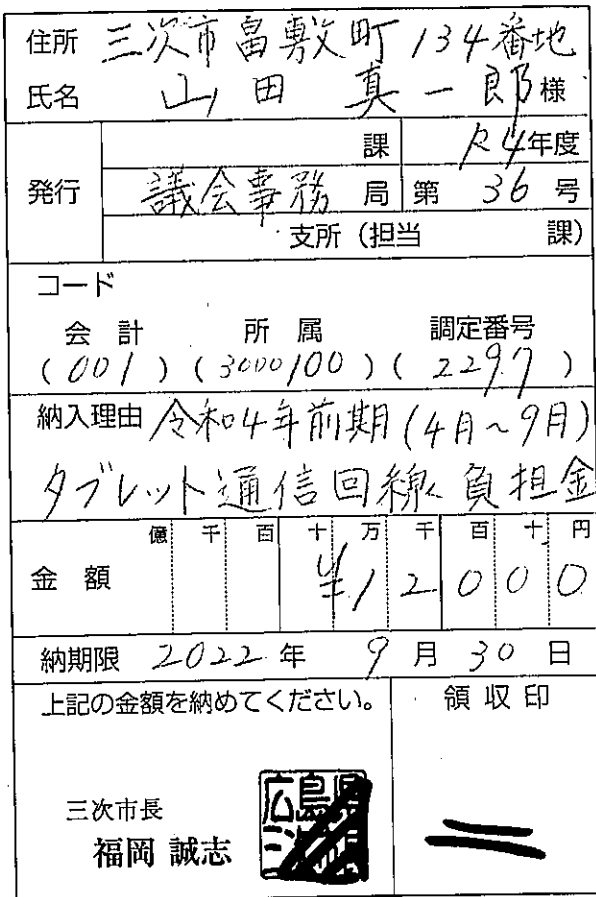 住所 三次市畠敷町134番地
氏名 山田 真一郎 様
課 R4年度
発行 議会事務局 第 36 号
支所(担当 課)
コード
会計 所属 調定番号
(001)(3000100)(2297)
納入理由 令和4年前期(4月~9月)
タブレット通信回線負担金
億 千 百 十 万 千 百 十 円
金額 ¥12000
納期限 2022年 9月 30日
上記の金額を納めてください。 領収印
三次市長
福岡 誠志
広島県